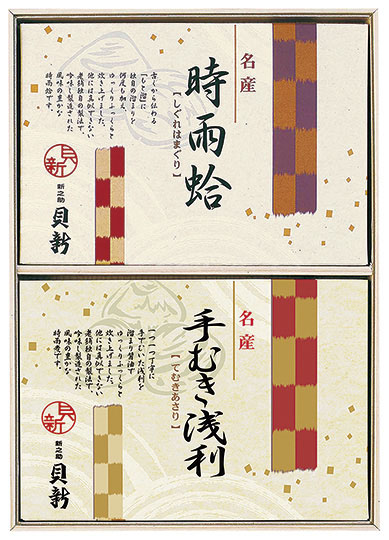 名産
時雨蛤
[しぐれはまぐり]
古くから伝わる
「もと溜」に
独自の溜まりを
何度も加え、
ゆっくりふっくらと
炊き上げました。
他には真似できない
老舗独自の製法で、
吟味し製造された
風味の豊かな
時雨蛤です。
貝新
新之助
貝新
名産
手むき浅利
[てむきあさり]
一つ一つ丁寧に
手でむいた浅利を
溜まり醤油で
ゆっくりふっくらと
炊き上げました。
他には真似できない
老舗独自の製法で、
吟味し製造された
風味の豊かな
時雨煮です。
貝新
新之助
貝新